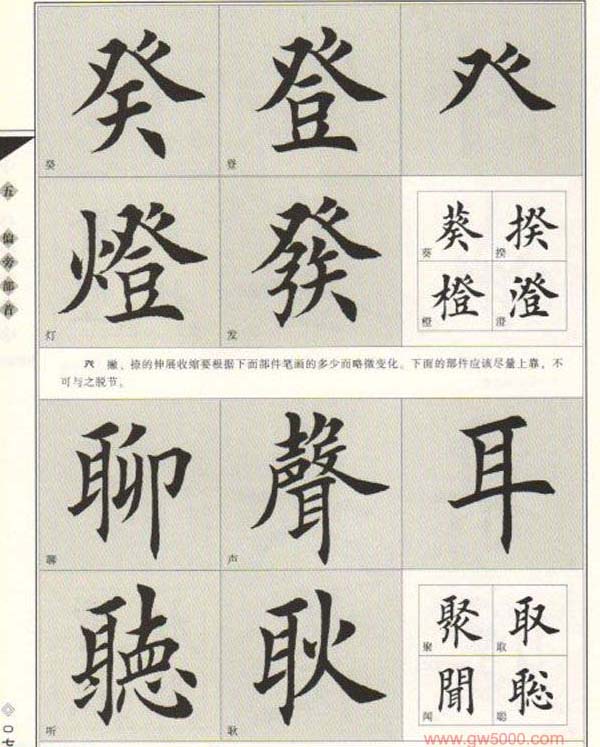 癸 登 癶
癸 登
燈 發
灯 发
葵 揆
葵 揆
橙 澄
橙 澄
五 偏旁部首
癶 撇、捺的伸展收缩要根据下面部件笔画的多少而略微变化。下面的部件应该尽量上靠，不
可与之脱节。
聊 聲 耳
聊 声
聽 耿
听 耿
聚 取
聚 取
聞 聪
闻 聪
www.gw5000.com